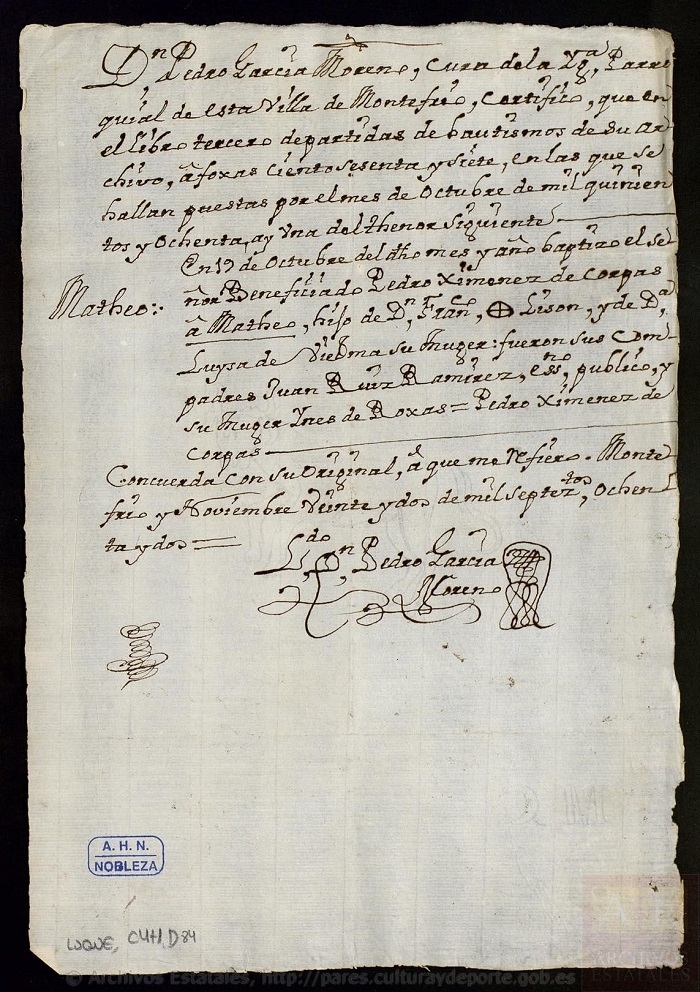 Dn Pedro Garcia Moreno, Cura de la Yga, Parro
quial de esta Villa de Montefrio, Certifico, que en
el libro tercero de partidas de bautismos de su ar
chivo, â foxas Ciento sesenta y siete, en las que se
hallan puestas por el mes de Octubre de mil quinien
tos y Ochenta, ay Vna del thenor Siguiente
En 19 de Octubre del dho mes y año baptizo el Se
ñor Beneficiado Pedro Ximenez de Corpas
Matheo:
â Matheo, hijo de Dn, Franco, Lison, y de Da,
Luysa de Viedma su Muger: fueron sus Com
padres Juan Ruiz Ramirez, essno, publico, y
su Muger Ynes de Roxas = Pedro Ximenez de
Corpas
Concuerda con su Original, â que me refiero. Monte
frio y Noviembre Veinte y dos de mil Septeztos, Ochen
ta y dos =
Ldo Dn, Pedro Garcia
Moreno
A. H. N.
NOBLEZA
LUQUE, C441, D 84
© Archivos Estatales, http://pares.culturaydeporte.gob.es